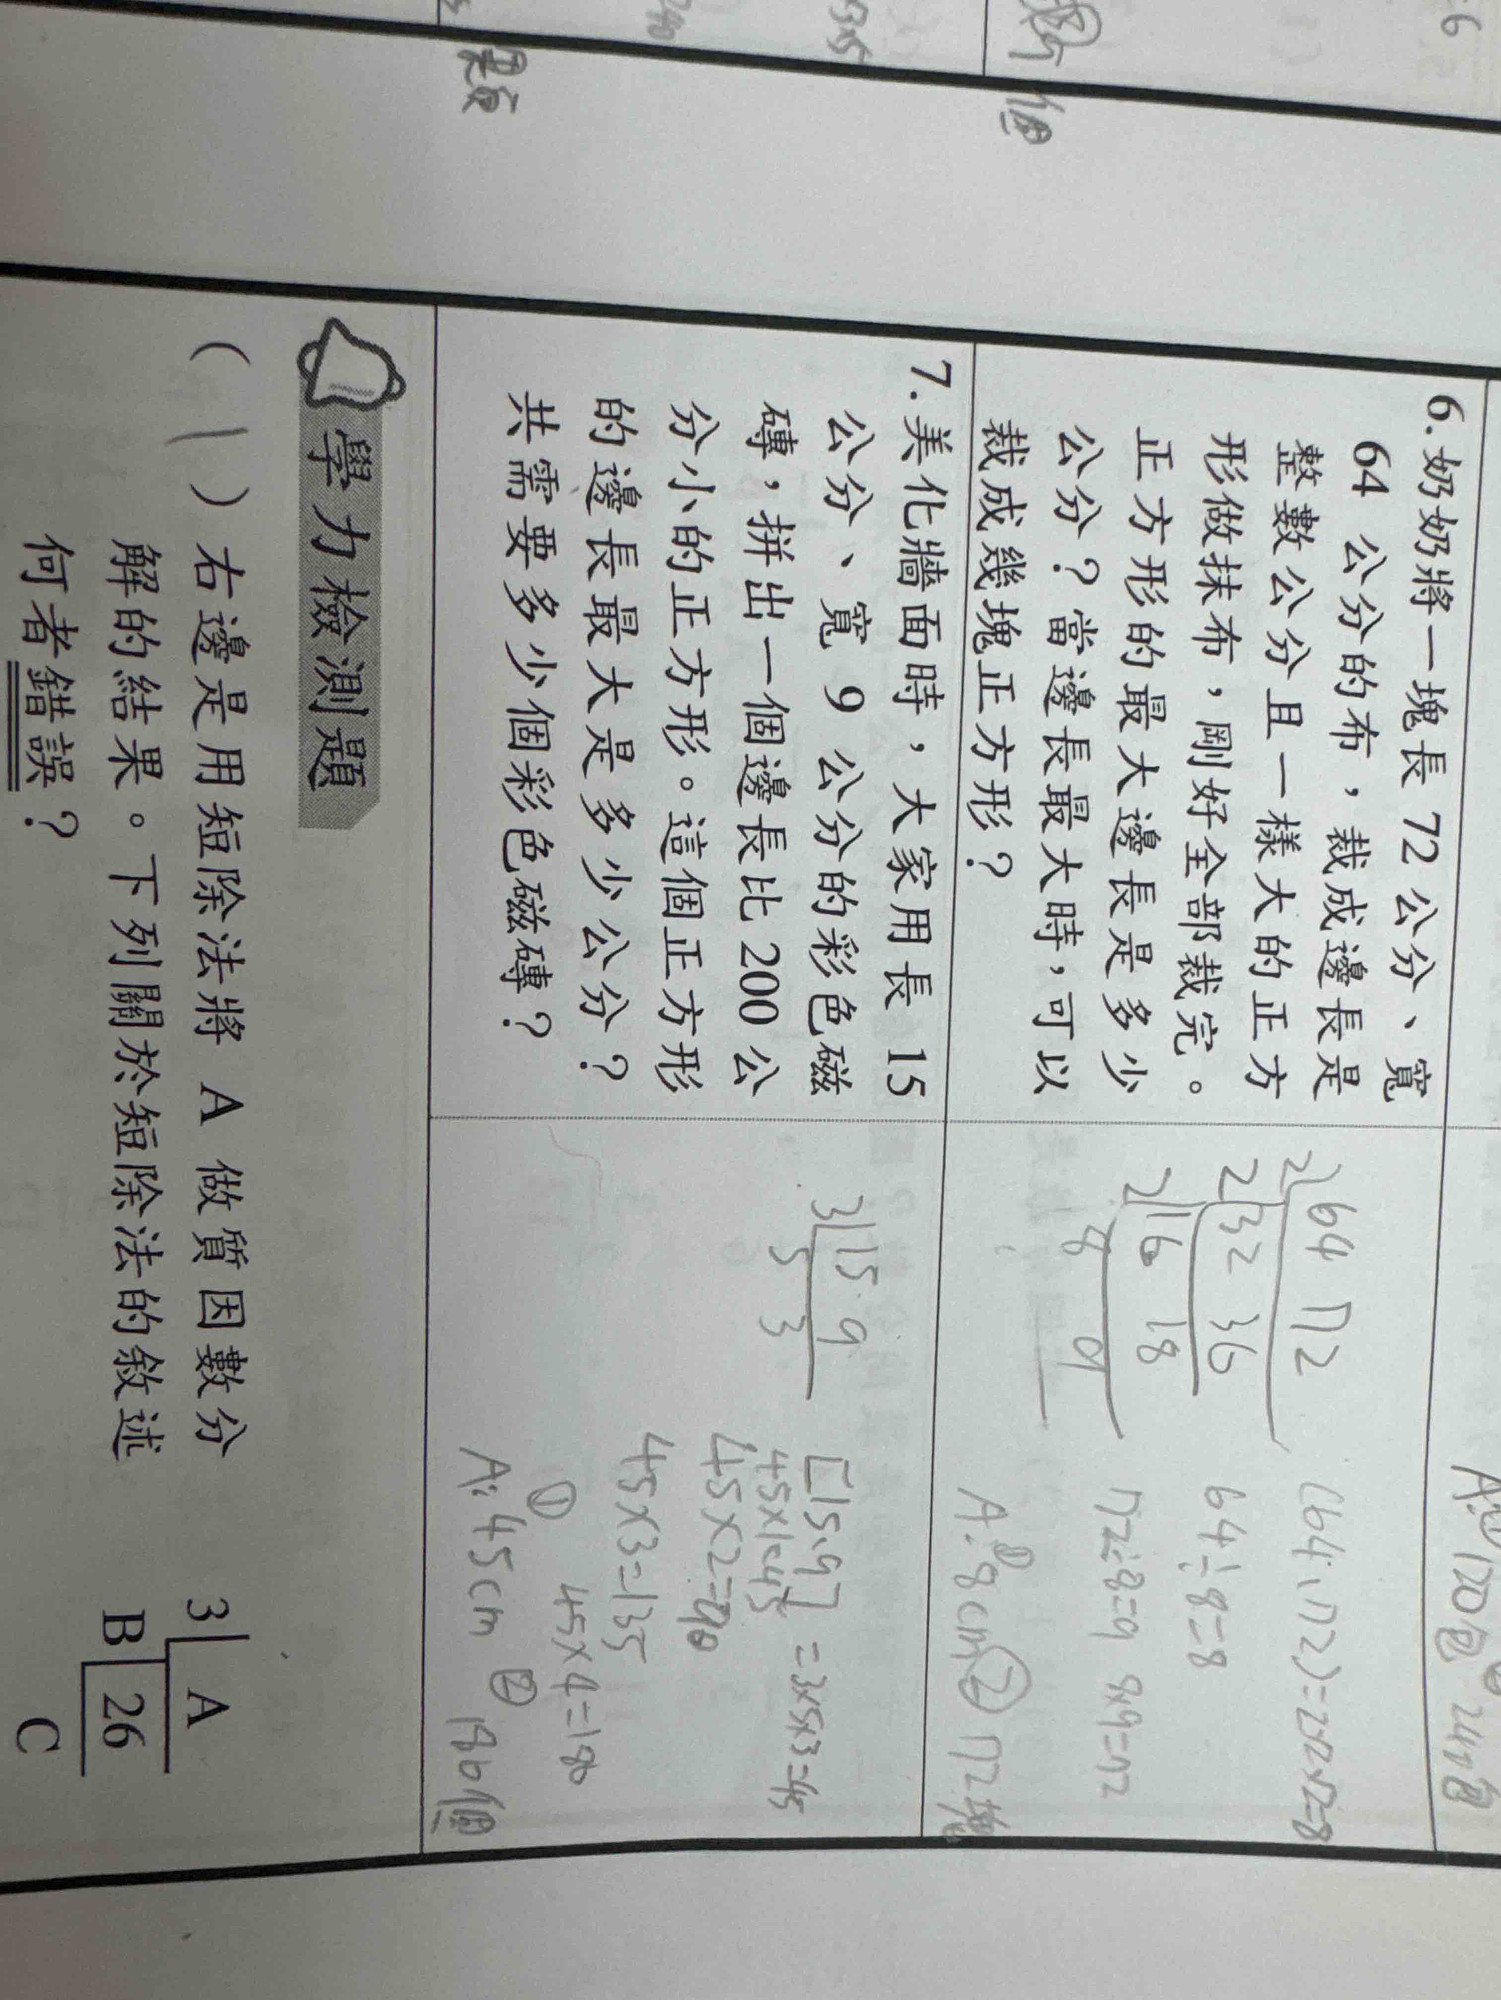 6. 奶奶將一塊長 72 公分、寬
64 公分的布，裁成邊長是
整數公分且一樣大的正方
形做抹布，剛好全部裁完。
正方形的最大邊長是多少
公分？當邊長最大時，可以
裁成幾塊正方形？
2 64 72
2 32 36
2 16 18
8 9
(64,72)=2×2×2=8
64÷8=8
72÷8=9 8×9=72
A:①8cm ②72塊
7. 美化牆面時，大家用長 15
公分、寬 9 公分的彩色磁
磚，拼出一個邊長比 200 公
分小的正方形。這個正方形
的邊長最大是多少公分？
共需要多少個彩色磁磚？
3 15 9
5 3
[15,9]=3×5×3=45
45×1=45
45×2=90
45×3=135
45×4=180
① ②
A: 45cm 180個
學力檢測題
( 1 ) 右邊是用短除法將 A 做質因數分
解的結果。下列關於短除法的敘述
何者錯誤？
3 A
B 26
C